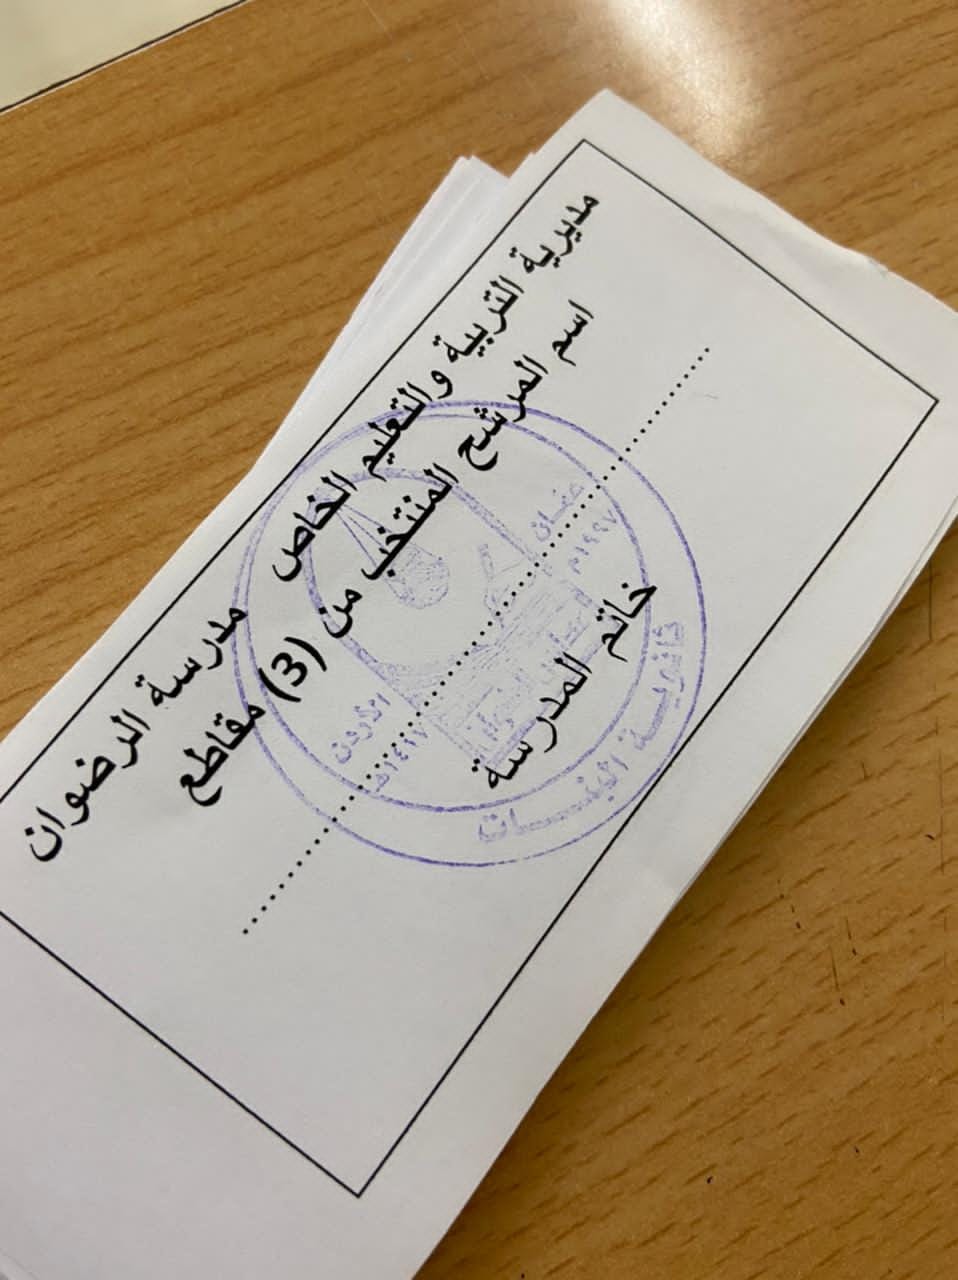 مديرية التربية والتعليم الخاص   مدرسة الرضوان
اسم المرشح المنتخب من (3) مقاطع
........................................
خاتم المدرسة
عمان
١٩٩٧م
الأردن
١٤١٧هـ
ثانويـة البنـــات